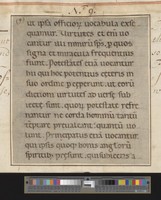 N. 9.
ut ipsa officiorum vocabula exse
quantur. Virtutes et eni vo
cantur illi nimirum sps, p quos
signa et miracula frequentius
fiunt. Potestates etiā vocantur
hii qui hoc potentius ceteris in
suo ordine perceperunt, ut eorū
dicioni virtutes adverse sub
iecte sint, quorū potestate refre
nantur ne corda hominū tantū
temptare prevaleant quantū vo
lunt. Principatus etiā vocantur
qui ipsis quoque bonis angelorū
spiritibz presunt, qui subiectis